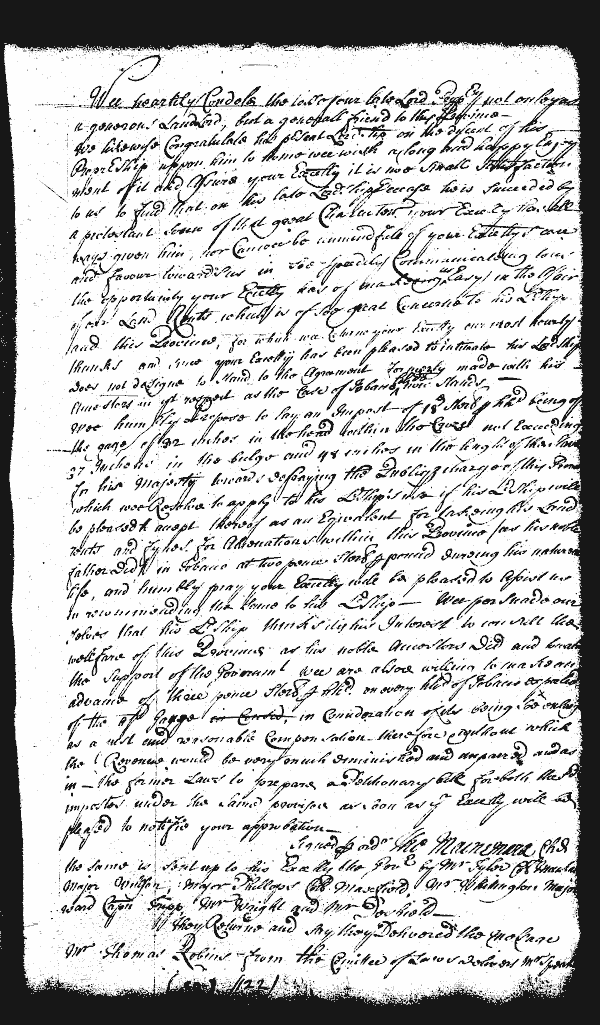 Wee heartily Condole the loss of our late Lord Propry not only as
a generous Landlord, but a generall friend to this Province
We likewise Congratulate his psent Ldship on the dicent of his
Propryship uppon him to whome wee wish a long and happy Enjoy
ment of it and Assure your Excelly it is noe small Satisfaction
to us to find that on his late Ldships decease he is succeeded by
a protestant Sonn of that great Character your Excelly has all
ways given him, nor Can wee be unmindfull of your Excellys care
and favour towards us in soe speedily Communicating to us
the oppertunity your Excelly has of making us Easy in the Affair
of our Land Rents which is of soe great Concerne to his Ldship
and this Province, for which wee returne your Excelly our most hearty
thanks and since your Excelly has been pleased to intimate his Ldship
does not designe to stand to the Agreement formerly made with his
Ancestors in yt respect as the Case of Tobacco now Stands
Wee humbly propose to lay an Impost of 18d Sterl p hhd being of
the gage of 32 inches in the head within the Crows not Exceeding
37 Inches in the bulge and 48 inches in the length of the Stave
for his Majesty towards defraying the Publick charge of this Province
which wee Resolve to apply to his Ldships use if his Ldship will
be pleased to accept thereof as an Equivalent for
rents and fynes for Alienations within this Province (as his noble
father Did) in Tobacco at two pence Sterl p pound dureing his naturall
life, and humbly pray your Excelly will be pleased to Assist us
in recommending the same to his Ldship Wee perswade our
selves that his Ldship thinks it his Interest to consult the
wellfare of this Province as his noble Ancestors Did and towards
the Support of the Governmt wee are alsoe willing to make an
advance of three pence Sterl p hhd on every hhd of Tobacco exported
of the aforesd Gauge in Consideration of its being soe enlarged
as a just and reasonable Compensation therefore without which
the Revenue would be very much diminished and impaired and as
in the former Laws to prepare a Petitionary bill for both the sd
imposts under the same proviso as soon as yr Excelly will be
pleased to notifie your approbation
Signed p ordr Tho Macnemara, Clk
the same is sent up to his Excelly the Govr by Mr Tyler
Major Wilson Major Phillips Coll Maxfield Mr Watkington Major
ward Capn Mr Wright and Mr
They Returne and say they Delivered the message
Mr Thomas Robins from the Comittee of Laws delivers Mr Speaker
122